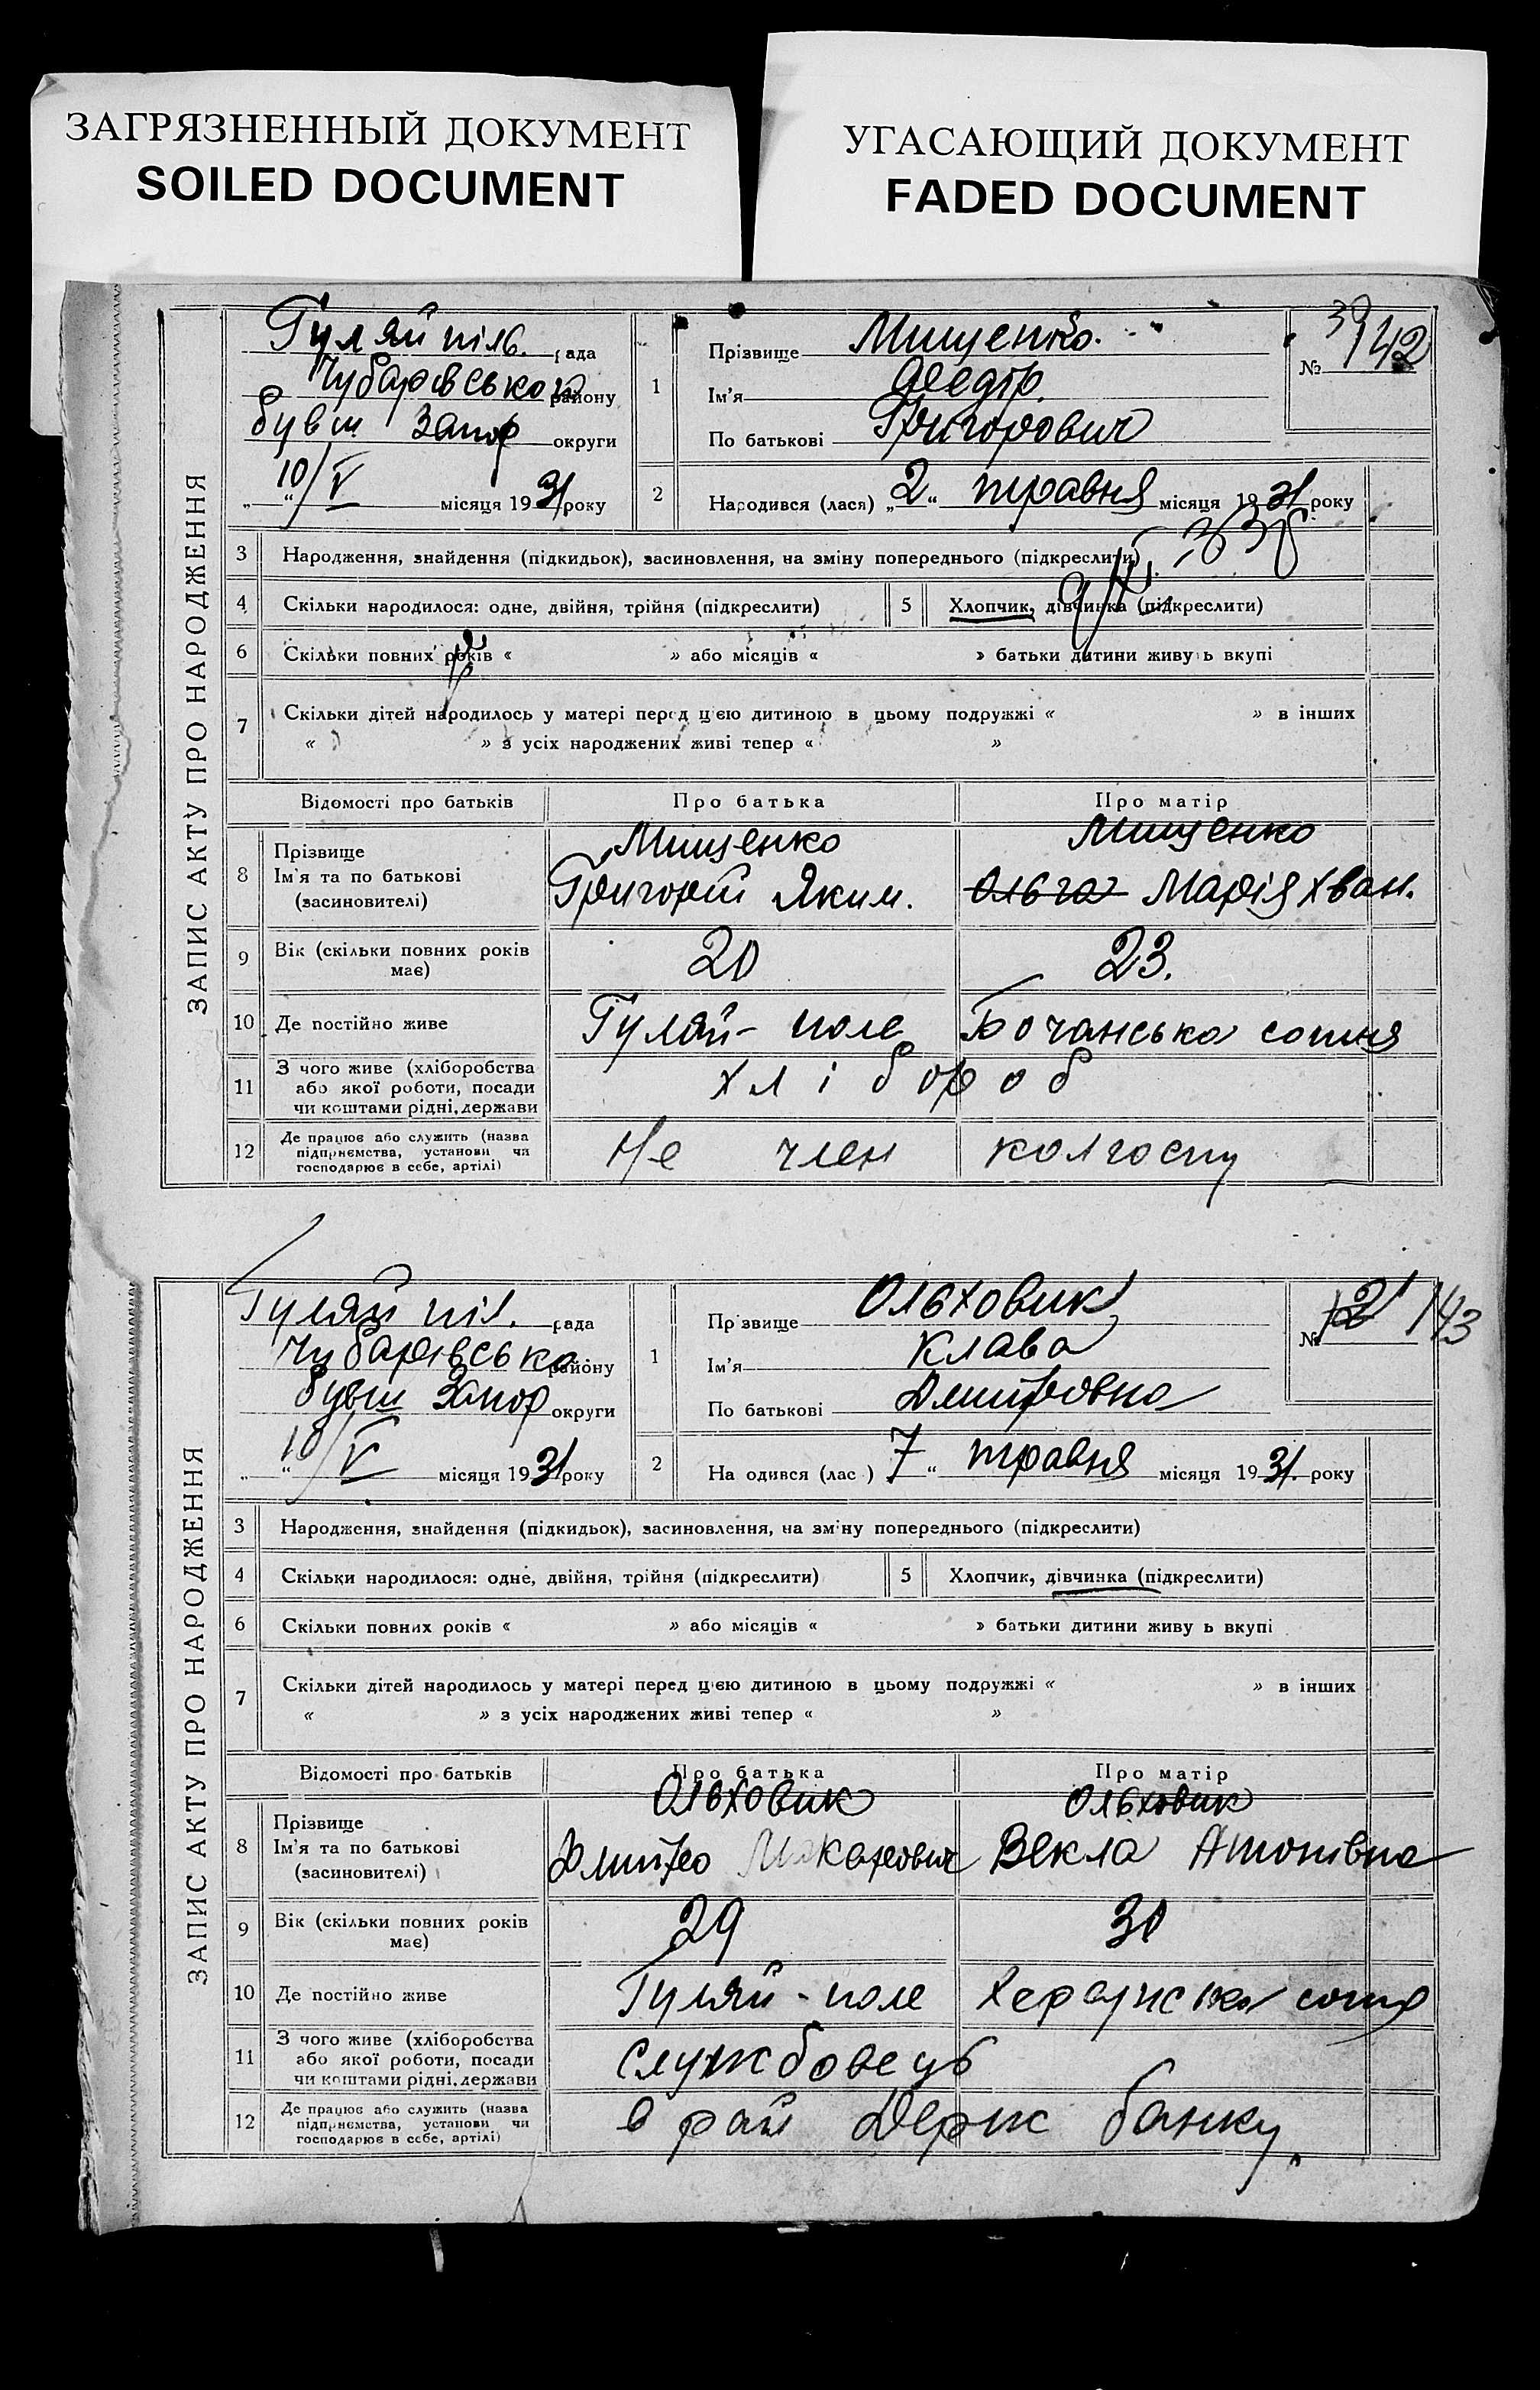 ЗАГРЯЗНЕННЫЙ ДОКУМЕНТ
SOILED DOCUMENT
УГАСАЮЩИЙ ДОКУМЕНТ
FADED DOCUMENT
ЗАПИС АКТУ ПРО НАРОДЖЕННЯ
Гуляйпіль. рада
Чубарівської району
бувш Запор округи
„10/V" місяця 1931 року
1 Прізвище Мищенко.
Ім'я Федір.
По батькові Григорович
№ 142
2 Народився (лася) „2" травня місяця 1931 року
3 Народження, знайдення (підкидьок), засиновлення, на зміну попереднього (підкреслити)
4 Скільки народилося: одне, двійня, трійня (підкреслити)
5 Хлопчик, дівчинка (підкреслити)
6 Скільки повних років « » або місяців « » батьки дитини живу ь вкупі
7 Скільки дітей народилось у матері перед цією дитиною в цьому подружжі « » в інших
« » з усіх народжених живі тепер « »
Відомості про батьків Про батька Про матір
8 Прізвище Мищенко Мищенко
Ім'я та по батькові Григорій Яким. Ольга Марія Хван.
(засиновителі)
9 Вік (скільки повних років має) 20 23.
10 Де постійно живе Гуляй-поле Бочанська сотня
11 З чого живе (хліборобства або якої роботи, посади чи коштами рідні, держави хлібороб
12 Де працює або служить (назва підприємства, установи чи господарює в себе, артілі) Не член колгоспу
ЗАПИС АКТУ ПРО НАРОДЖЕННЯ
Гуляйпіл. рада
Чубарівсько. району
бувш Запор округи
„10/V" місяця 1931 року
1 Прізвище Ольховик
Ім'я Клава
По батькові Дмитровна
№ 143
2 На одився (лас ) 7" травня місяця 1931. року
3 Народження, знайдення (підкидьок), засиновлення, на зміну попереднього (підкреслити)
4 Скільки народилося: одне, двійня, трійня (підкреслити)
5 Хлопчик, дівчинка (підкреслити)
6 Скільки повних років « » або місяців « » батьки дитини живу ь вкупі
7 Скільки дітей народилось у матері перед цією дитиною в цьому подружжі « » в інших
« » з усіх народжених живі тепер « »
Відомості про батьків Про батька Про матір
8 Прізвище Ольховик Ольховик
Ім'я та по батькові Дмитро Макарович Векла Атонівна
(засиновителі)
9 Вік (скільки повних років має) 29 30
10 Де постійно живе Гуляй-поле Херсунська сотня
11 З чого живе (хліборобства або якої роботи, посади чи коштами рідні, держави Службовець
12 Де працює або служить (назва підприємства, установи чи господарює в себе, артілі) в рай Держ банку